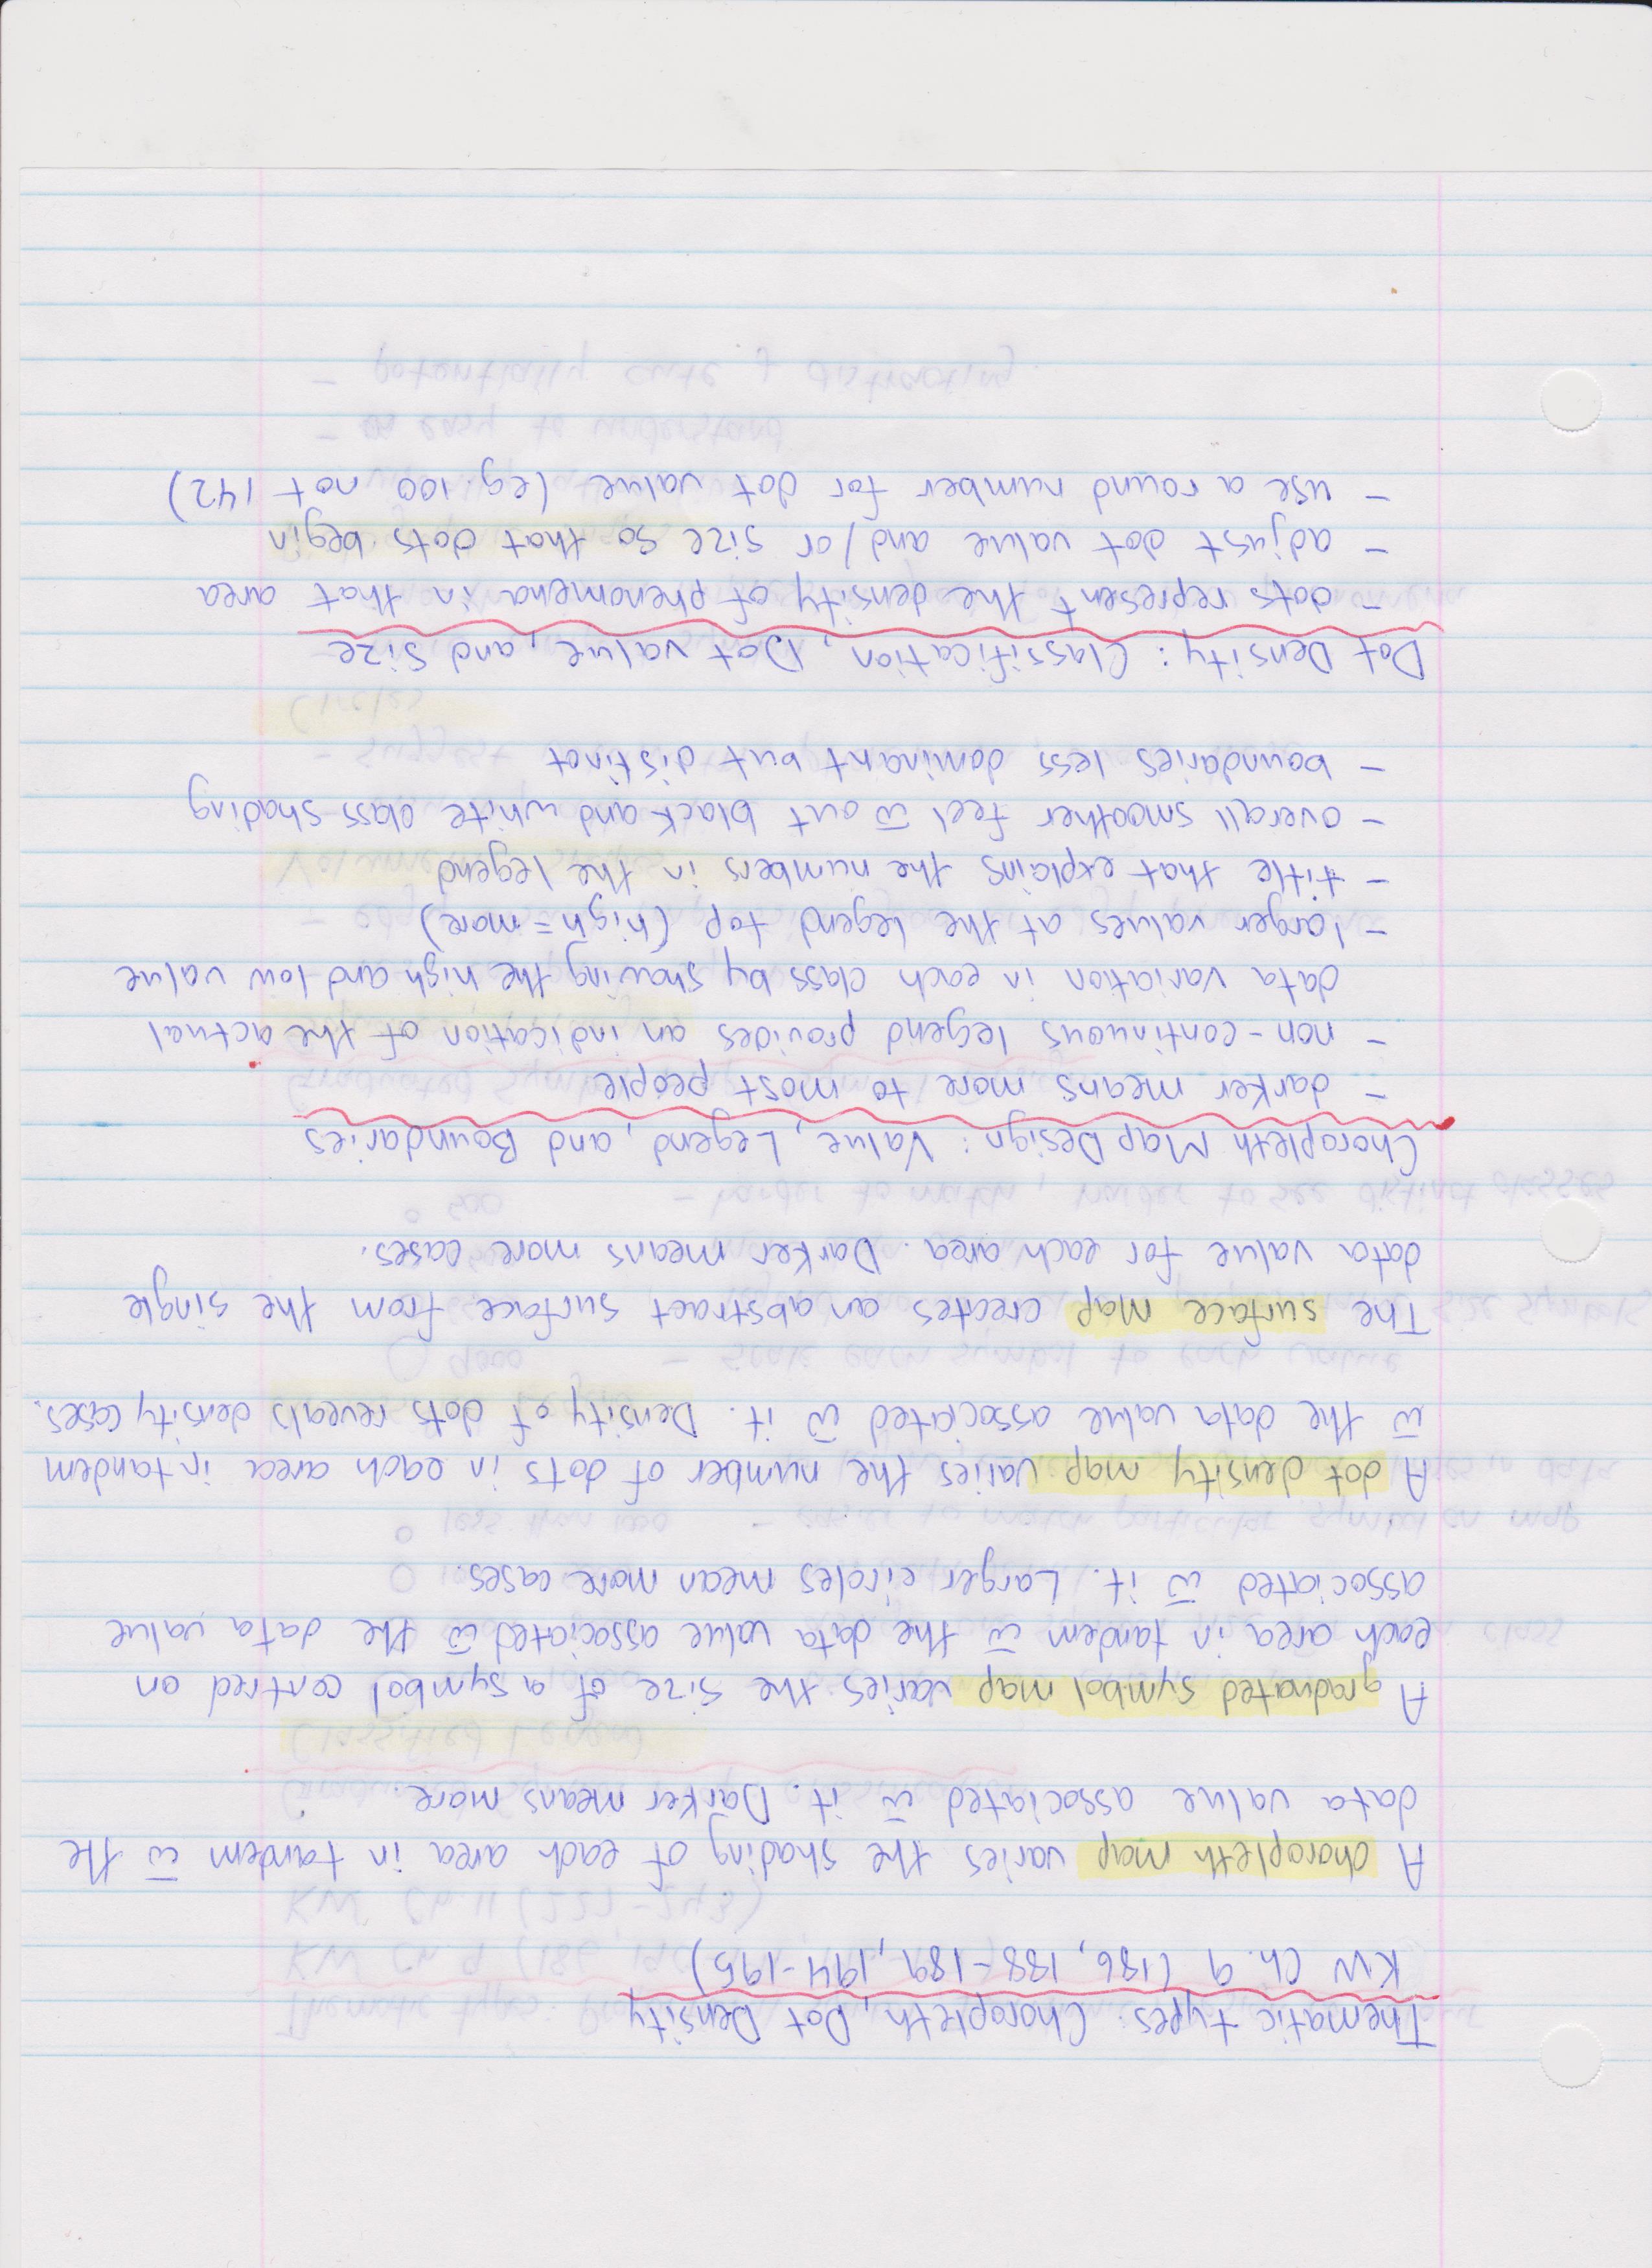 Thematic types: Choropleth, Dot Density
KW Ch. 9 (186, 188-189, 194-195)
A choropleth map varies the shading of each area in tandem w̄ the
data value associated w̄ it. Darker means more.
A graduated symbol map varies the size of a symbol centred on
each area in tandem w̄ the data value associated w̄ the data value
associated w̄ it. Larger circles mean more cases.
A dot density map varies the number of dots in each area in tandem
w̄ the data value associated w̄ it. Density of dots reveals density cases.
The surface map creates an abstract surface from the single
data value for each area. Darker means more cases.
Choropleth Map Design: Value, Legend, and Boundaries
- darker means more to most people
- non-continuous legend provides an indication of the actual
data variation in each class by showing the high and low value
- larger values at the legend top (high = more)
- title that explains the numbers in the legend
- overall smoother feel w̄out black and white class shading
- boundaries less dominant but distinct
Dot Density: Classification, Dot value, and Size
- dots represent the density of phenomena in that area
- adjust dot value and/or size so that dots begin
- use a round number for dot value (eg. 100 not 142)